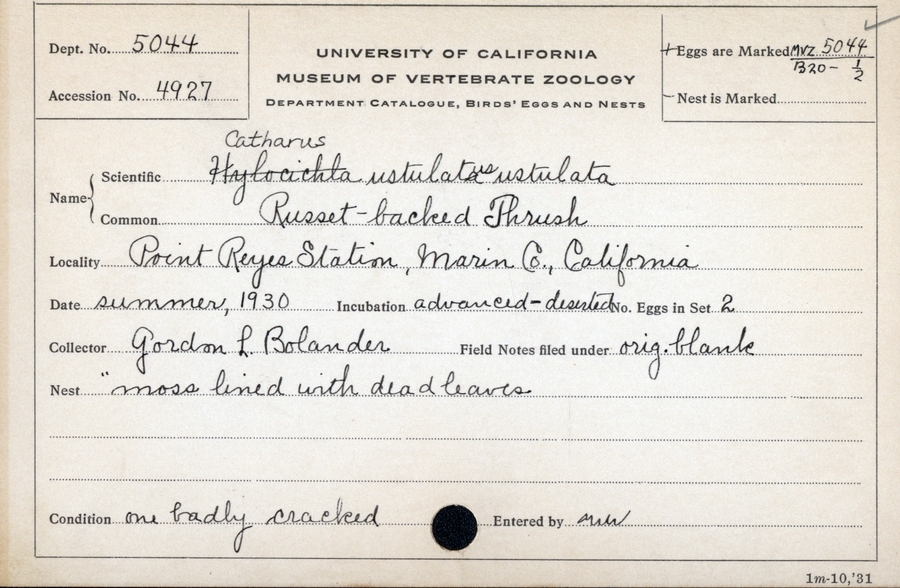 Dept. No. 5044
Accession No. 4927
UNIVERSITY OF CALIFORNIA
MUSEUM OF VERTEBRATE ZOOLOGY
DEPARTMENT CATALOGUE, BIRDS' EGGS AND NESTS
+ Eggs are Marked MVZ 5044
B20 - 1/2
- Nest is Marked
Catharus
Name Scientific Hylocichla ustulatus ustulata
Common Russet-backed Thrush
Locality Point Reyes Station, Marin Co., California
Date summer, 1930 Incubation advanced-deserted No. Eggs in Set 2
Collector Gordon L. Bolander Field Notes filed under orig. blank
Nest "moss lined with dead leaves
Condition one badly cracked Entered by
1m-10,'31